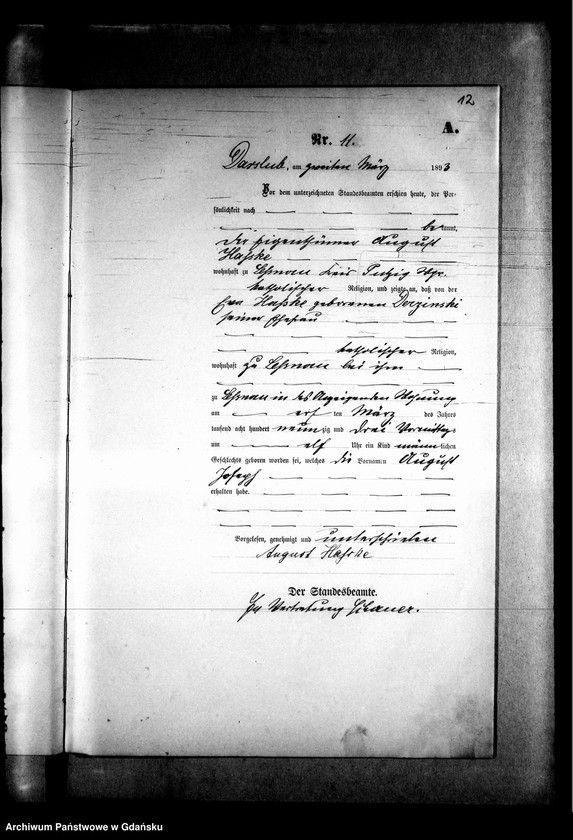 12
A.
Nr. 11.
Darslub, am zweiten März 1893
Vor dem unterzeichneten Standesbeamten erschien heute, der Per-
sönlichkeit nach
bekannt,
der Eigenthümer August
Haſske
wohnhaft zu Leſsnau Kreis Putzig Wpr.
katholischer Religion, und zeigte an, daß von der
Frau Haſske geborenen Dorzinski
seiner Ehefrau
katholischer Religion,
wohnhaft zu Leſsnau bei ihm
zu Leſsnau in des Anzeigenden Wohnung
am ersten März des Jahres
tausend acht hundert neunzig und drei Vormittags
um elf Uhr ein Kind männlichen
Geschlechts geboren worden sei, welches die Vornamen August
Joseph
erhalten habe.
Vorgelesen, genehmigt und unterschrieben
August Haſske
Der Standesbeamte.
In Vertretung
Archiwum Państwowe w Gdańsku